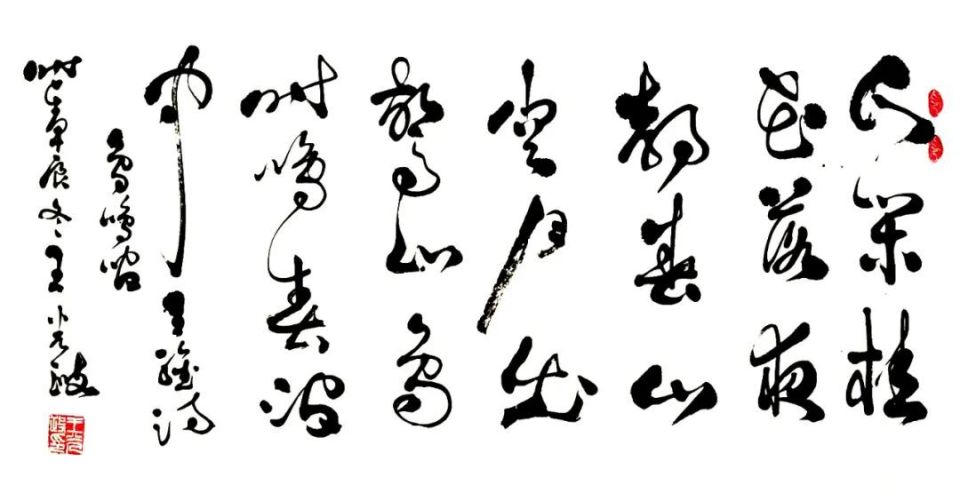 人闲桂
花落夜
静春山
空月出
惊山鸟
时鸣春涧
中 王维诗
鸟鸣涧
时在庚辰冬王光